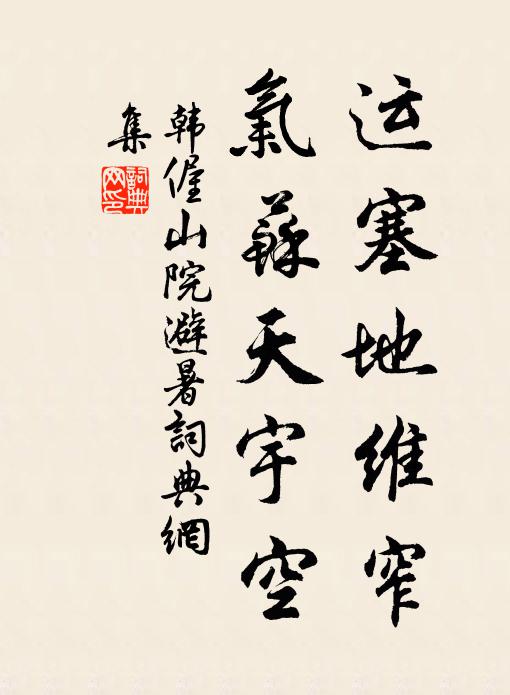 运塞地维窄
氣蘇天宇空
韩偓山院避暑詞典網
集
詞典
网印